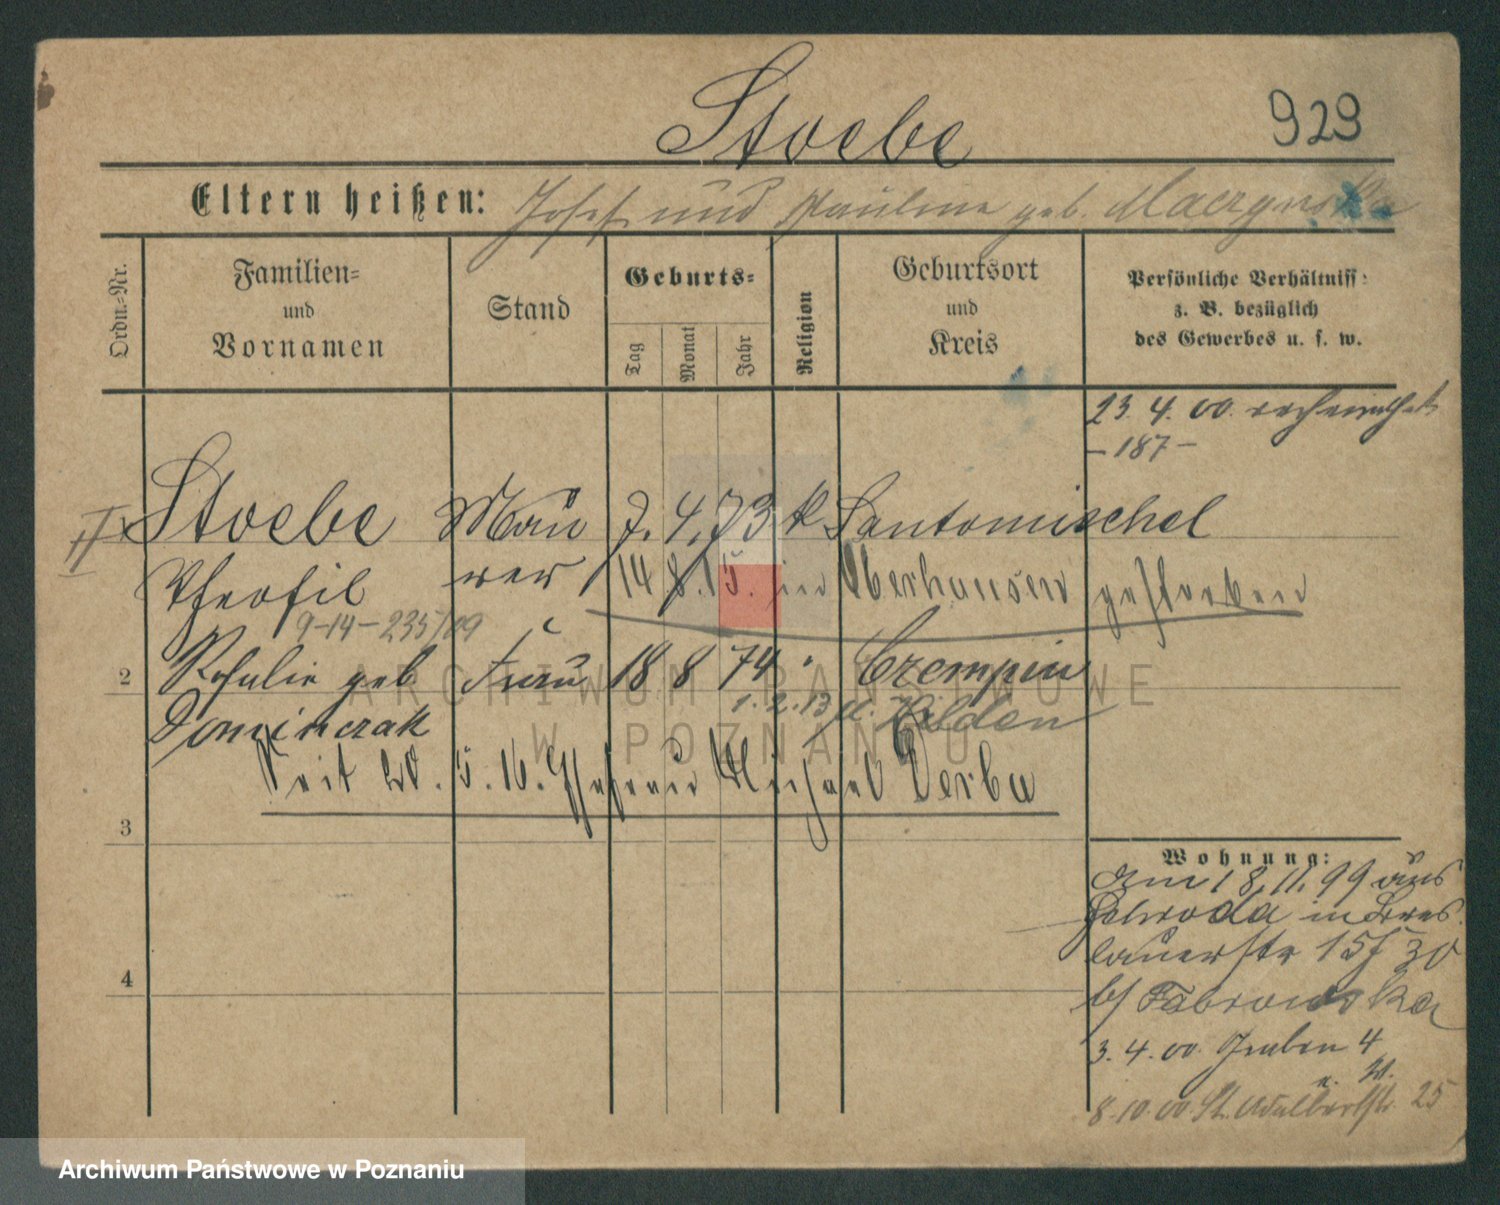 Stoebe
929
Eltern heißen: Josef und Pauline geb.
Ordn.=Nr.
Familien=
und
Vornamen
Stand
Geburts=
Tag
Monat
Jahr
Religion
Geburtsort
und
Kreis
Persönliche Verhältniss
z. B. bezüglich
des Gewerbes u. s. w.
23. 4. 00.
- 187 -
Stoebe Mau 7. 4. 73 k Santomischel
Theofil rer 14 8. 15. in Oberhausen gestorben
9-14-235/09
2 geb Frau 18 8 74 " Czempin
1. 2. 13 Hilden
Dominczak
Seit 20. 5. 16. Ehefrau Michael Derba
3
4
Wohnung:
Am 18. 11. 99 aus
Schroda in Bres
lauerstr 15
b/
3. 4. 00. Graben 4
8. 10. 00 St. Adalbertstr. 25
ARCHIWUM PAŃSTWOWE
W POZNANIU
Archiwum Państwowe w Poznaniu